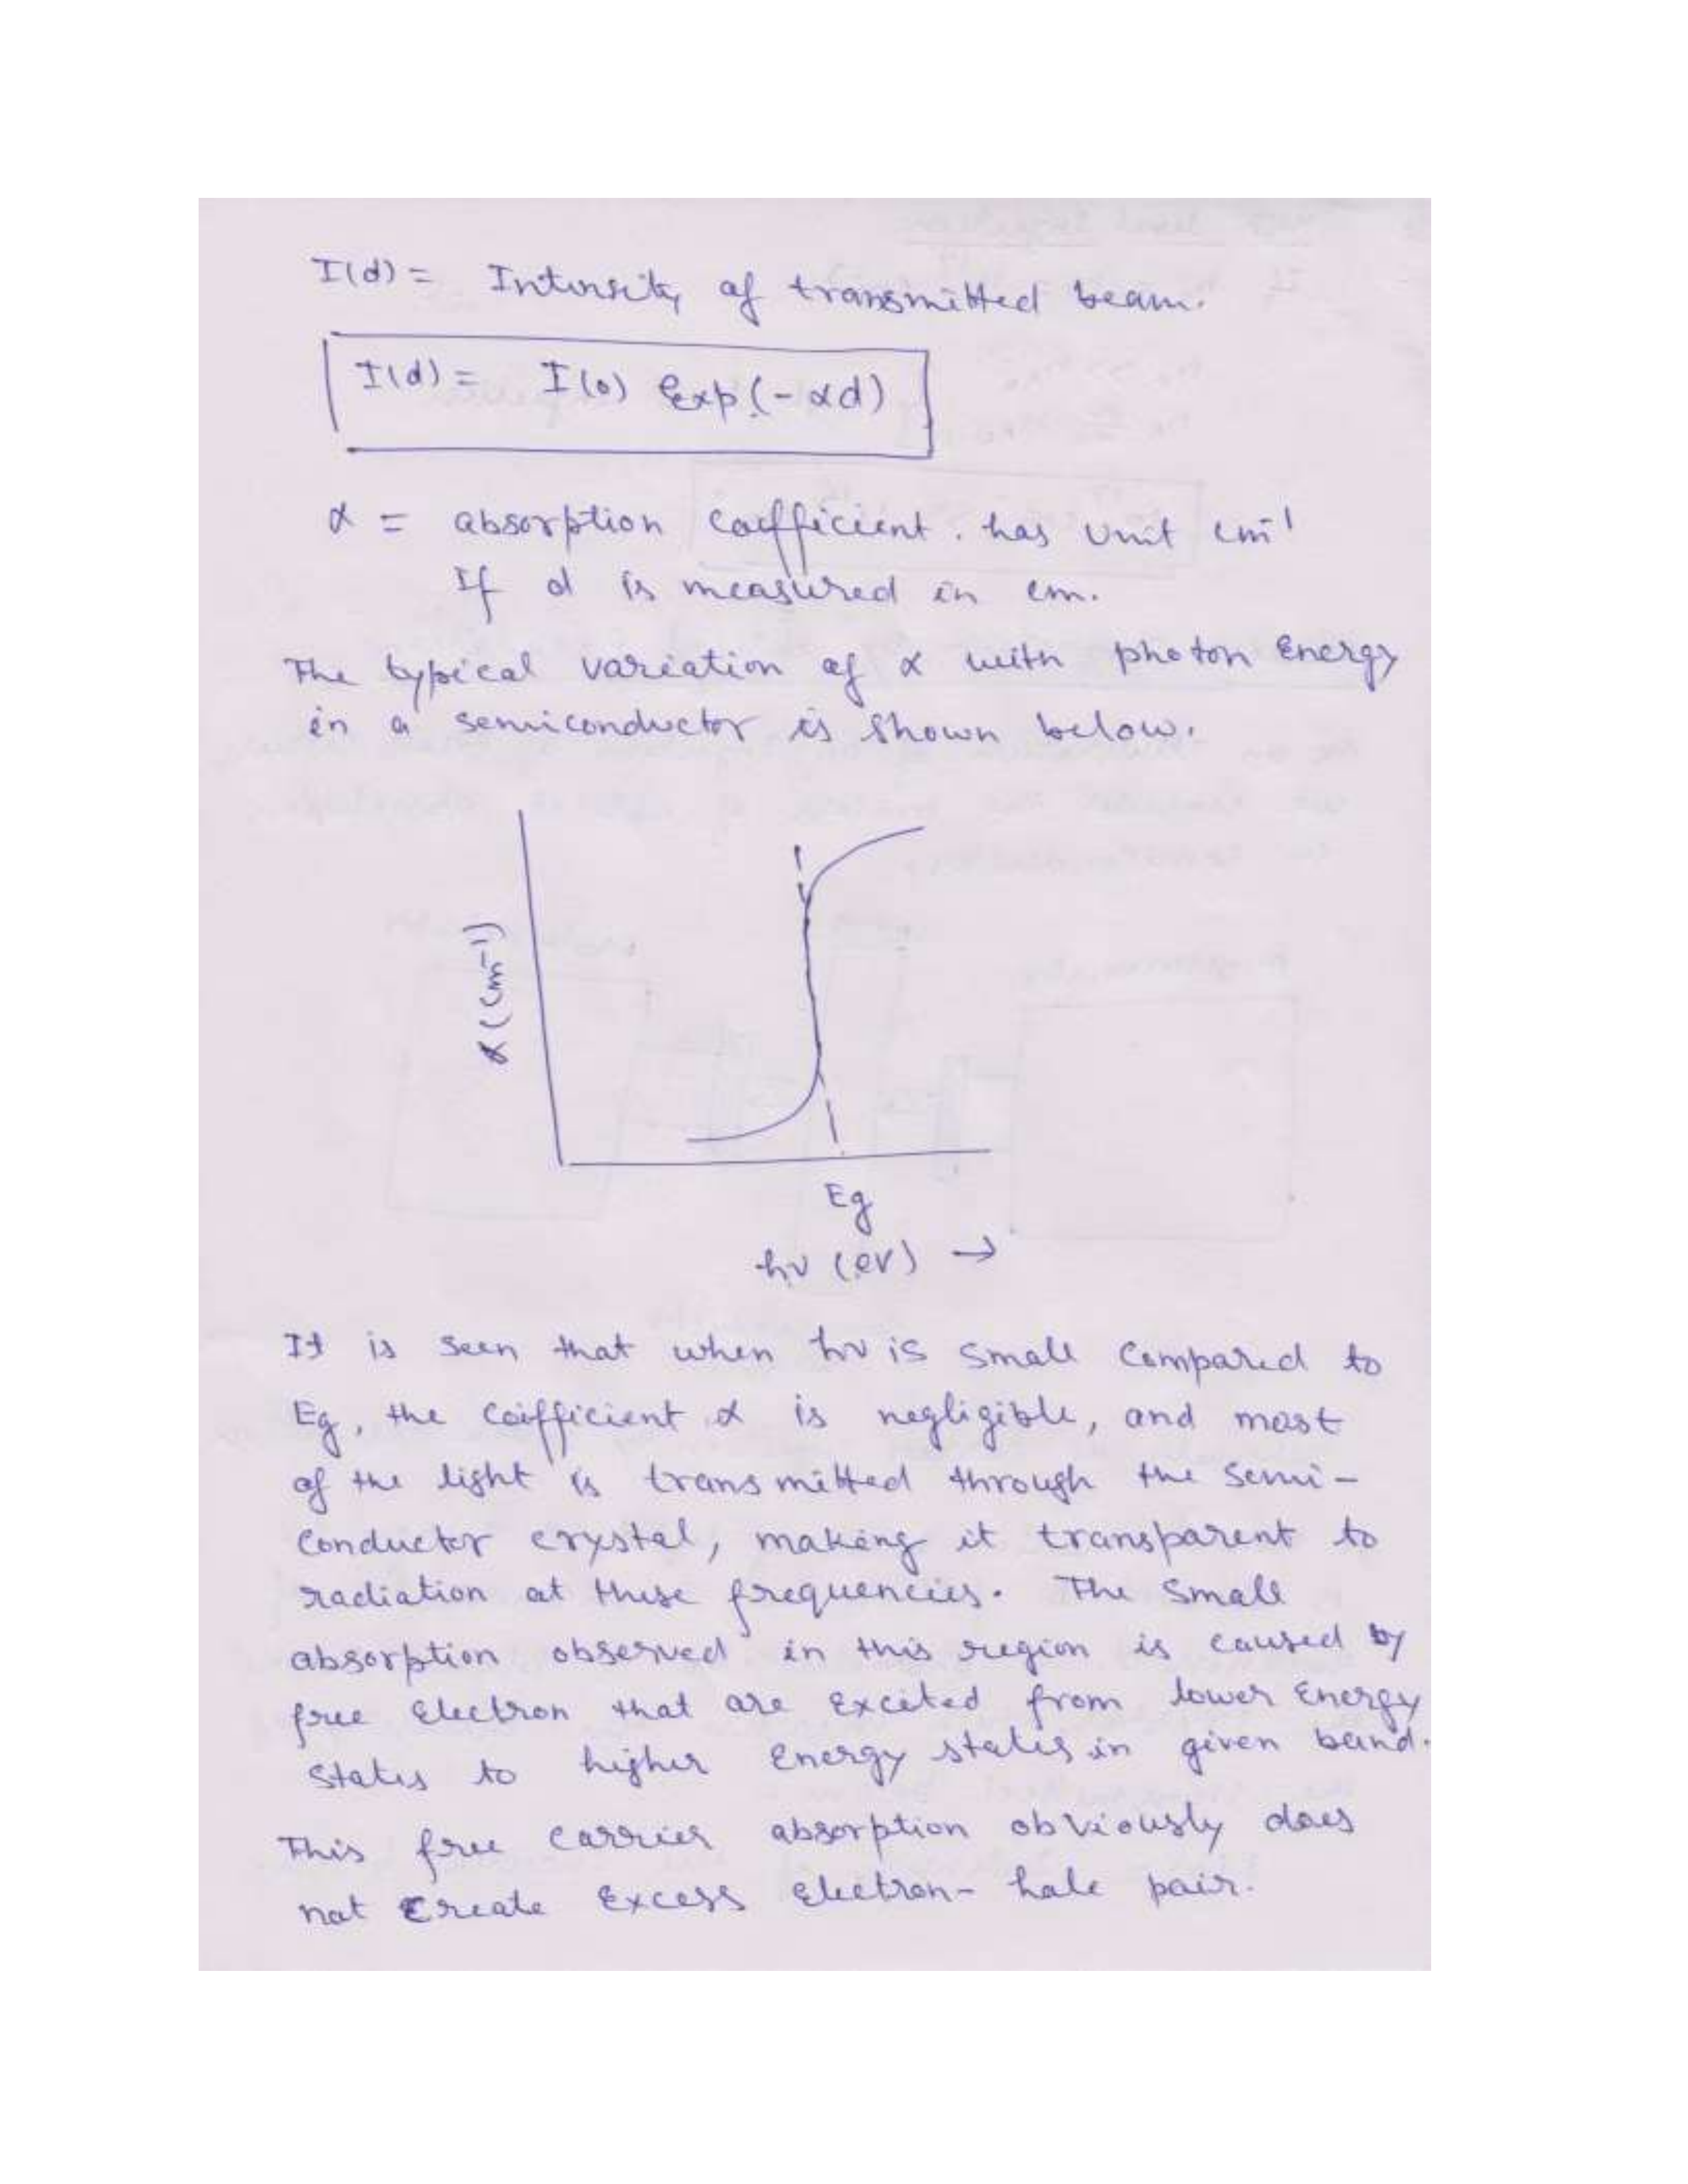 I(d) = Intensity of transmitted beam.
I(d) = I(0) Exp.(-αd)
α = absorption coefficient. has unit cm⁻¹
If d is measured in cm.
The typical variation of α with photon Energy
in a semiconductor is shown below.
α (cm⁻¹)
Eg
hν (eV) →
It is seen that when hν is small compared to
Eg, the coefficient α is negligible, and most
of the light is transmitted through the semi-
conductor crystal, making it transparent to
radiation at these frequencies. The small
absorption observed in this region is caused by
free electron that are excited from lower Energy
states to higher Energy states in given band.
This free carrier absorption obviously does
not create excess electron-hole pair.